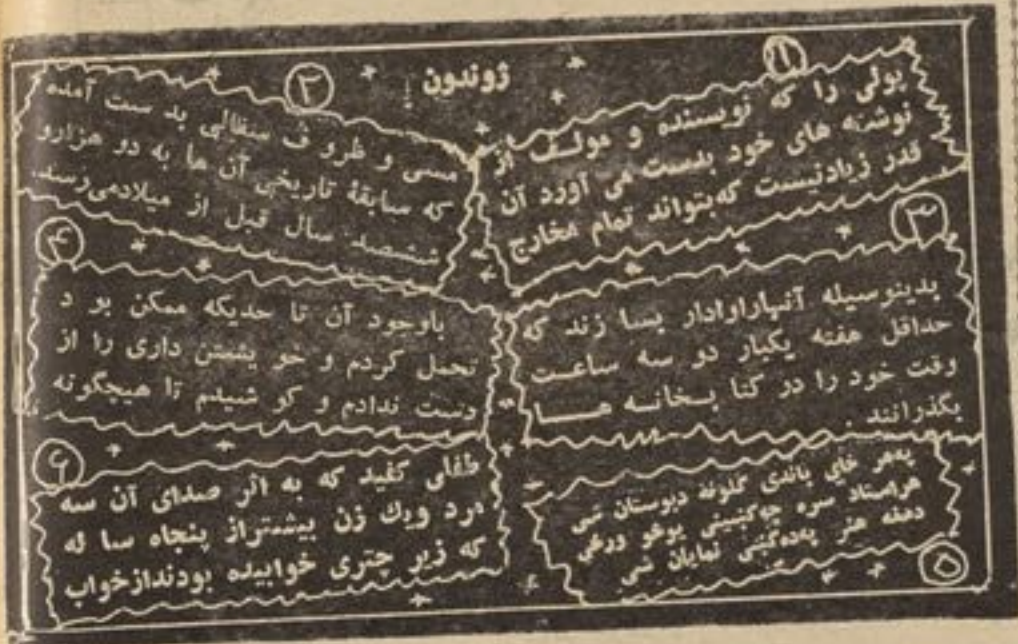 ژوندون
۱
پولی را که نویسنده و مولف از
نوشته های خود بدست می آورد آن
قدر زیادنیست که بتواند تمام مخارج
۲
مسی و ظرو ف سفالی بد ست آمده
که سابقهٔ تاریخی آن ها به دو هزارو
ششصد سال قبل از میلادمی‌رسد.
۳
بدینوسیله آنهاراوادار بسا زند که
حداقل هفته یکبار دو سه ساعت
وقت خود را در کتا بخانه هــا
بگذرانند .
۴
باوجود آن تا حدیکه ممکن بو د
تحمل کردم و خو یشتن داری را از
دست ندادم و کو شیدم تا هیچگونه
۵
په‌هر ځای باندی کلونه دبوستان شی
هراستاد سره چه‌کښینی یوڅو ورځی
دهغه هنر په‌ده‌کښی نمایان شی
۶
طفلی کفید که به اثر صدای آن سه
مرد ویك زن بیشتراز پنجاه سا له
که زیر چتری خوابیده بودندازخواب